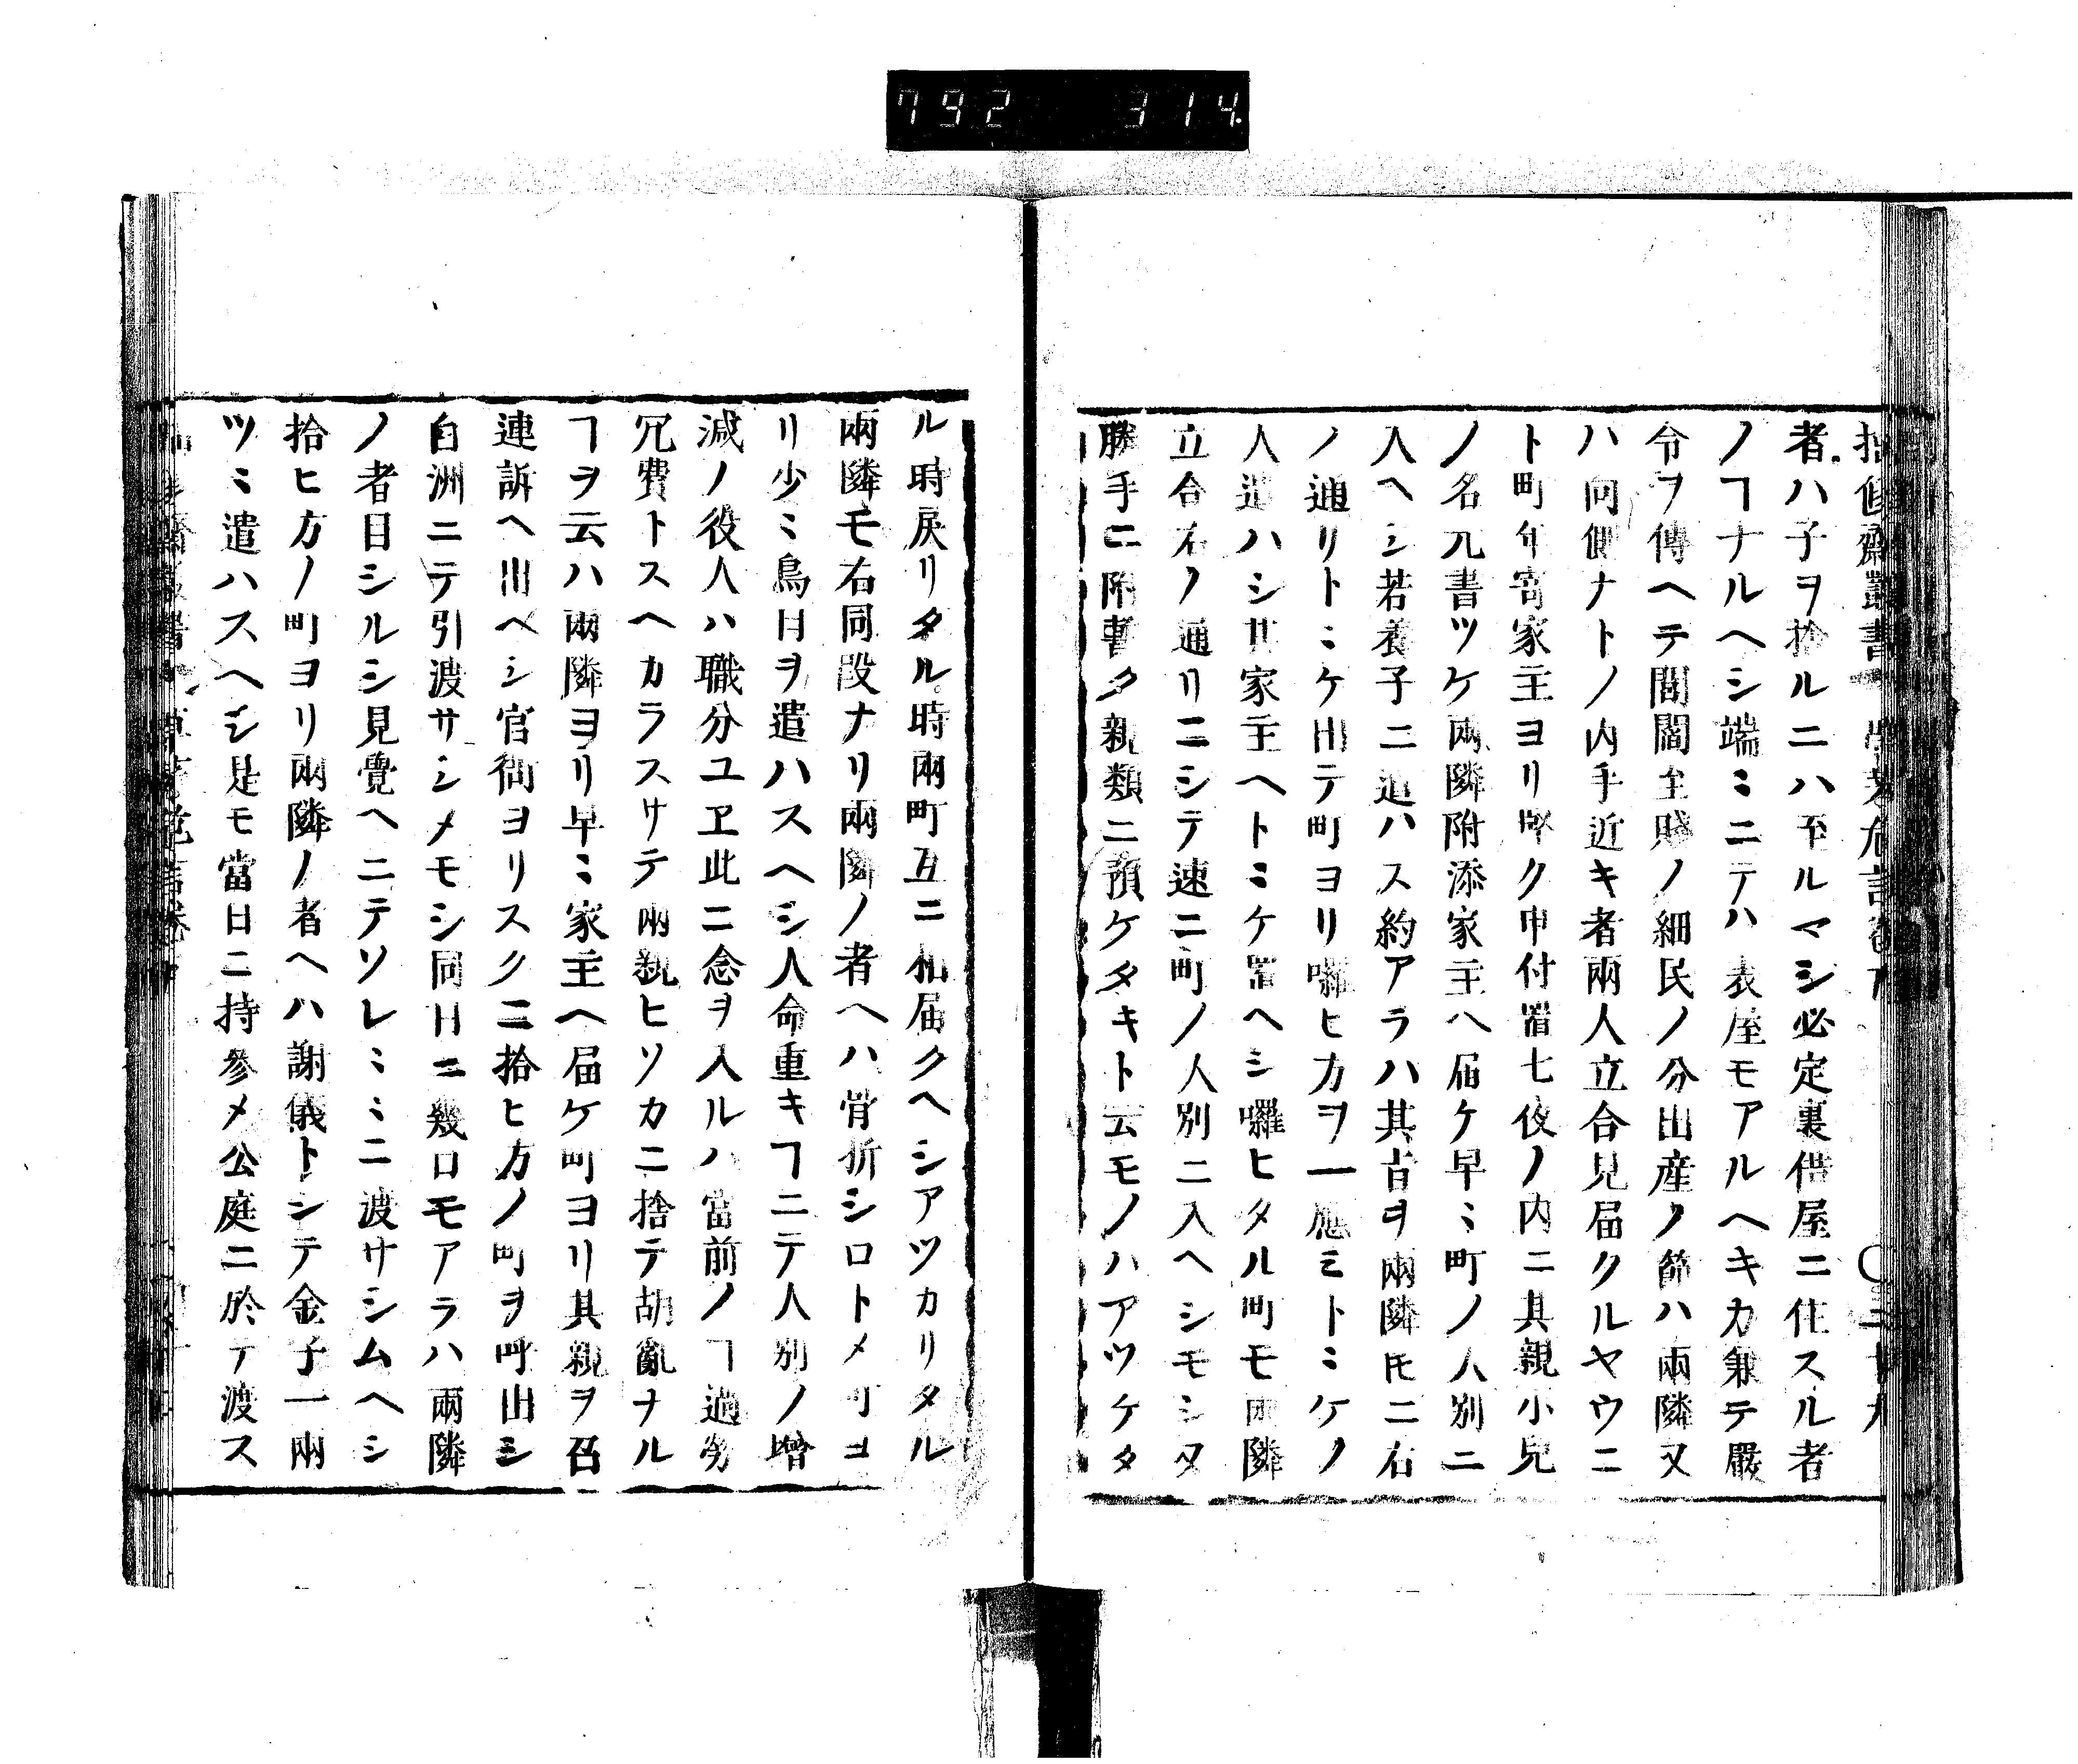 792 314.
者ハ子ヲ捨ルニハ至ルマシ必定裏借屋ニ住スル者
ノヿナルヘシ端ミニテハ表屋モアルヘキカ兼テ嚴
令ヲ傳ヘテ閭閻至賤ノ細民ノ分出産ノ節ハ兩隣又
ハ向側ナトノ内手近キ者兩人立合見届クルヤウニ
ト町年寄家主ヨリ堅ク申付置七夜ノ内ニ其親小兒
ノ名元書ツケ兩隣附添家主ヘ届ケ早ミ町ノ人別ニ
入ヘシ若養子ニ遣ハス約アラハ其旨ヲ兩隣𪜈ニ右
ノ通リトミケ出テ町ヨリ囉ヒ方ヲ一應ミトミケノ
人遣ハシ其家主ヘトミケ置ヘシ囉ヒタル町モ兩隣
立合右ノ通リニシテ速ニ町ノ人別ニ入ヘシモシ又
勝手ニ附暫ク親類ニ預ケタキト云モノハアツケタ
ル時戻リタル時兩町互ニ相届クヘシアツカリタル
兩隣モ右同段ナリ兩隣ノ者ヘハ骨折シロトメ町ヨ
リ少ミ鳥目ヲ遣ハスヘシ人命重キヿニテ人別ノ增
減ノ役人ハ職分ユヱ此ニ念ヲ入ルハ當前ノヿ過分
冗費トスヘカラスサテ兩親ヒソカニ捨テ胡亂ナル
ヿヲ云ハ兩隣ヨリ早ミ家主ヘ届ケ町ヨリ其親ヲ召
連訴ヘ出ベシ官衙ヨリスクニ拾ヒ方ノ町ヲ呼出シ
白洲ニテ引渡サシメモシ同日ニ幾口モアラハ兩隣
ノ者目シルシ見覺ヘニテソレミミニ渡サシムヘシ
拾ヒ方ノ町ヨリ兩隣ノ者ヘハ謝儀トシテ金子一兩
ツミ遣ハスヘシ是モ當日ニ持參メ公庭ニ於テ渡ス